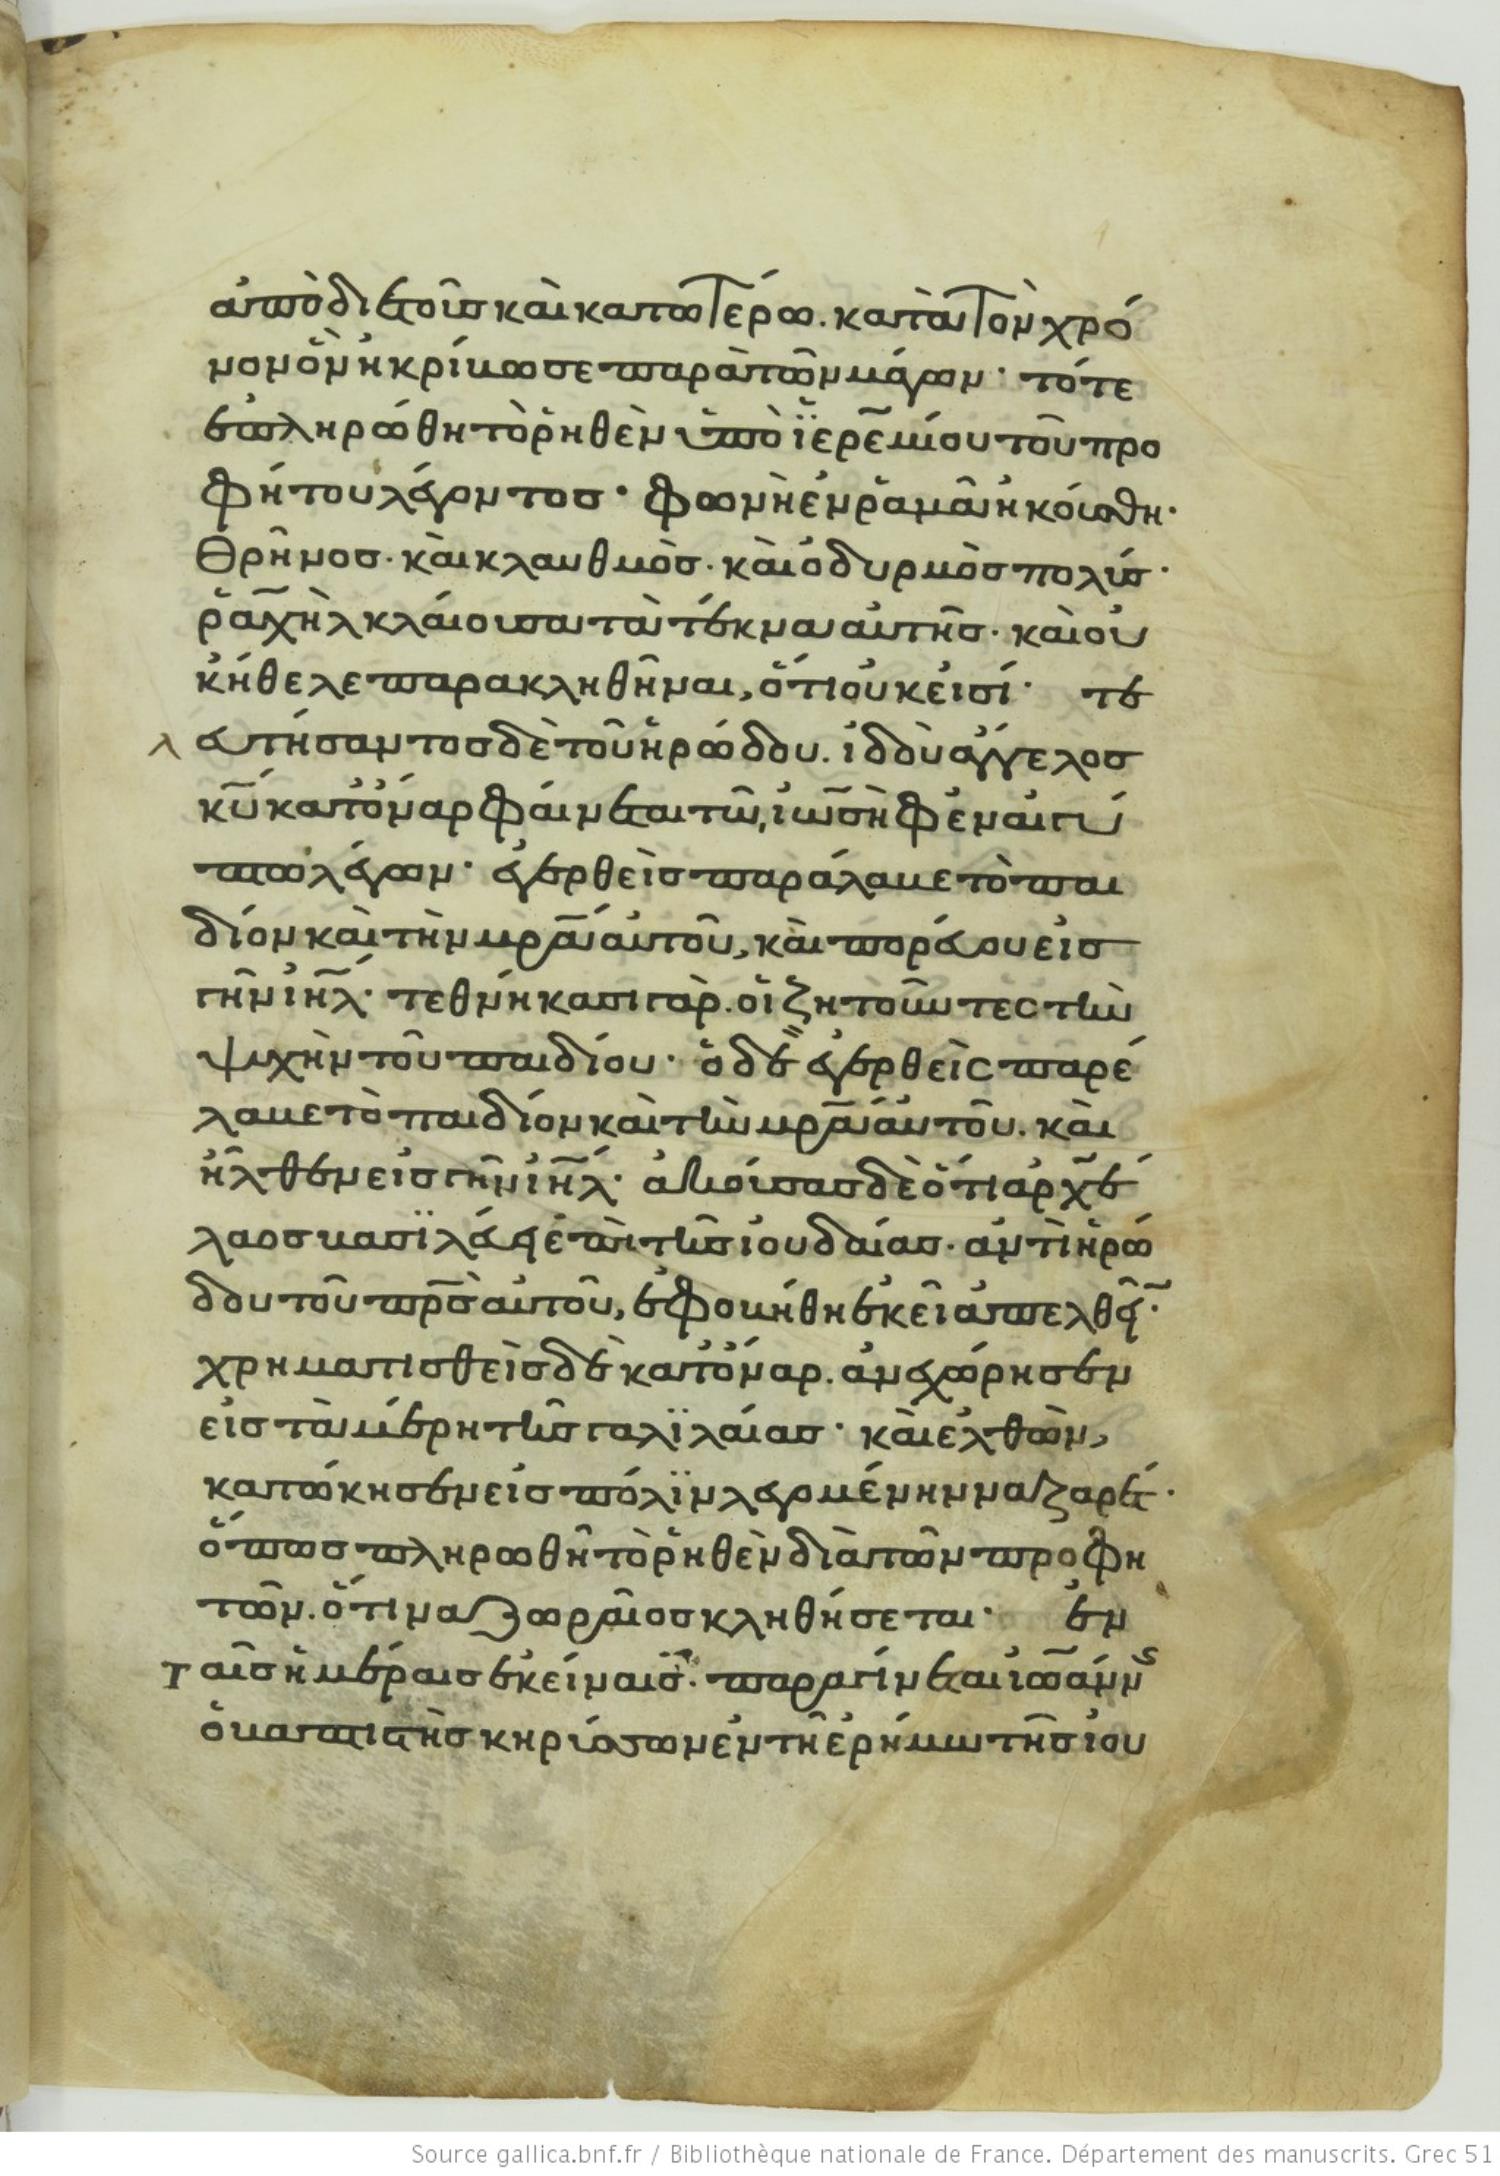 ἀπὸ διετοῦς καὶ κατωτέρω. κατὰ τὸν χρό
νον ὃν ἠκρίβωσε παρὰ τῶν μάγων· τότε
ἐπληρώθη τὸ ῥηθὲν ὑπὸ ϊερεμίου τοῦ προ
φήτου λέγοντος· φωνὴ ἐν ῥαμᾶ ἠκούσθη·
θρῆνος· καὶ κλαυθμὸς· καὶ ὀδυρμὸς πολύς·
ῥαχὴλ κλαίουσα τὰ τέκνα αυτῆς· καὶ οὐ
κ ἤθελε παρακληθῆναι, ὅτι οὐκ εἰσί· τε
λ ευτήσαντος δὲ τοῦ ἡρώδου. ἰδοὺ ἄγγελος
κυ κατόναρ φαίνεται τῶ, ἰωσὴφ ἐν αἰγύ
πτω λέγων· ἐγερθεὶς παράλαβε τὸ παι
δίον καὶ τὴν μρα αὐτοῦ, καὶ πορεύου εἰς
γῆν ιηλ· τεθνήκασι γὰρ. οἱ ζητοῦντες τὴν
ψυχὴν τοῦ παιδίου· ὁ δὲ ἐγερθεὶς παρέ
λαβε τὸ παιδίον καὶ τὴν μρα αὐτοῦ. καὶ
ἦλθεν εἰς γῆν ιηλ· ἀκούσας δὲ ὅτι ἀρχέ
λαος βασϊλεύει ἐπὶ τῆς ἰουδαίας. ἀντὶ ἡρώ
δου τοῦ πρς αὐτοῦ, ἐφοβήθη ἐκεῖ ἀπελθεῖν·
χρηματισθεὶς δὲ κατόναρ. ἀνεχώρησεν
εἰς τὰ μέρη τῆς γαλϊλαίας· καὶ ἐλθὼν,
κατώκησεν εἰς πόλϊν λεγομένην ναζαρέτ·
ὅπως πληρωθῆ τὸ ῥηθὲν διὰ τῶν προφη
τῶν. ὅτι ναζωραῖος κληθήσεται· ἐν
τ αῖς ἡμέραις ἐκείναις. παραγίνεται ἰωάννης
ὁ βαπτιστὴς κηρύσσων ἐν τῆ ἐρήμω τῆς ἰου
Source gallica.bnf.fr / Bibliothèque nationale de France. Département des manuscrits. Grec 51